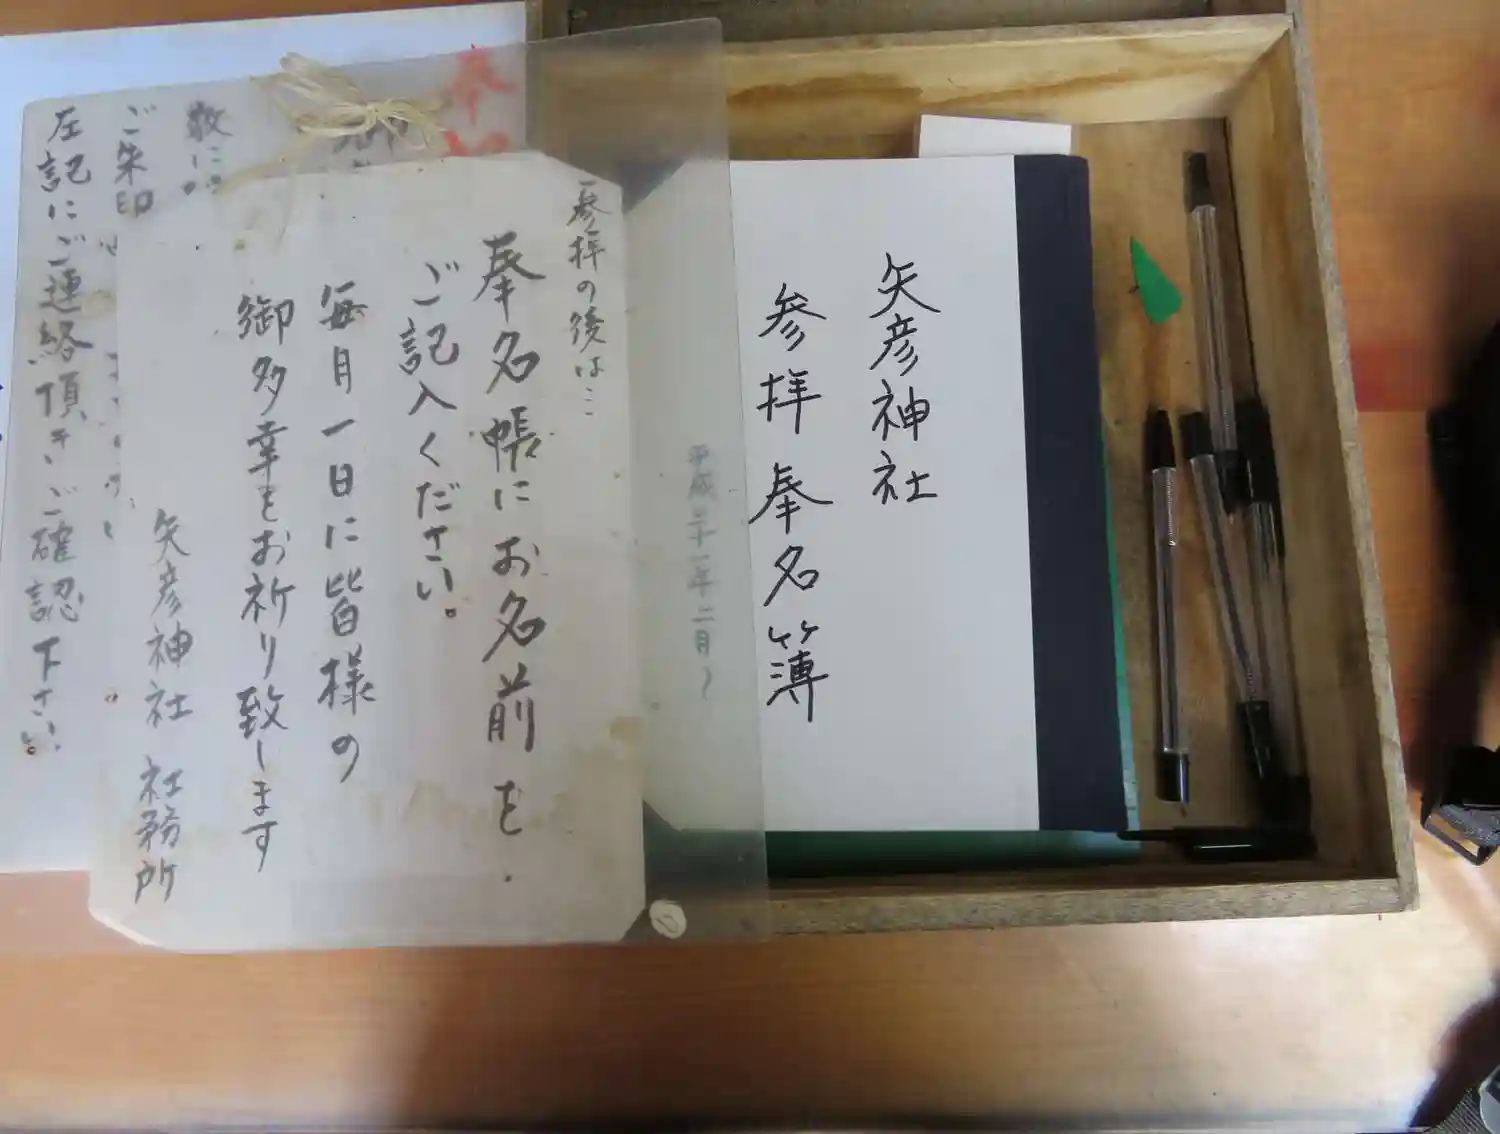 矢彦神社
参拝奉名簿
平成三十一年二月〜
参拝の後は…
奉名帳にお名前を.
ご記入ください。
毎月一日に皆様の
御多幸をお祈り致します
矢彦神社 社務所
奉
敬に
ご朱印
左記にご連絡頂きご確認下さい。